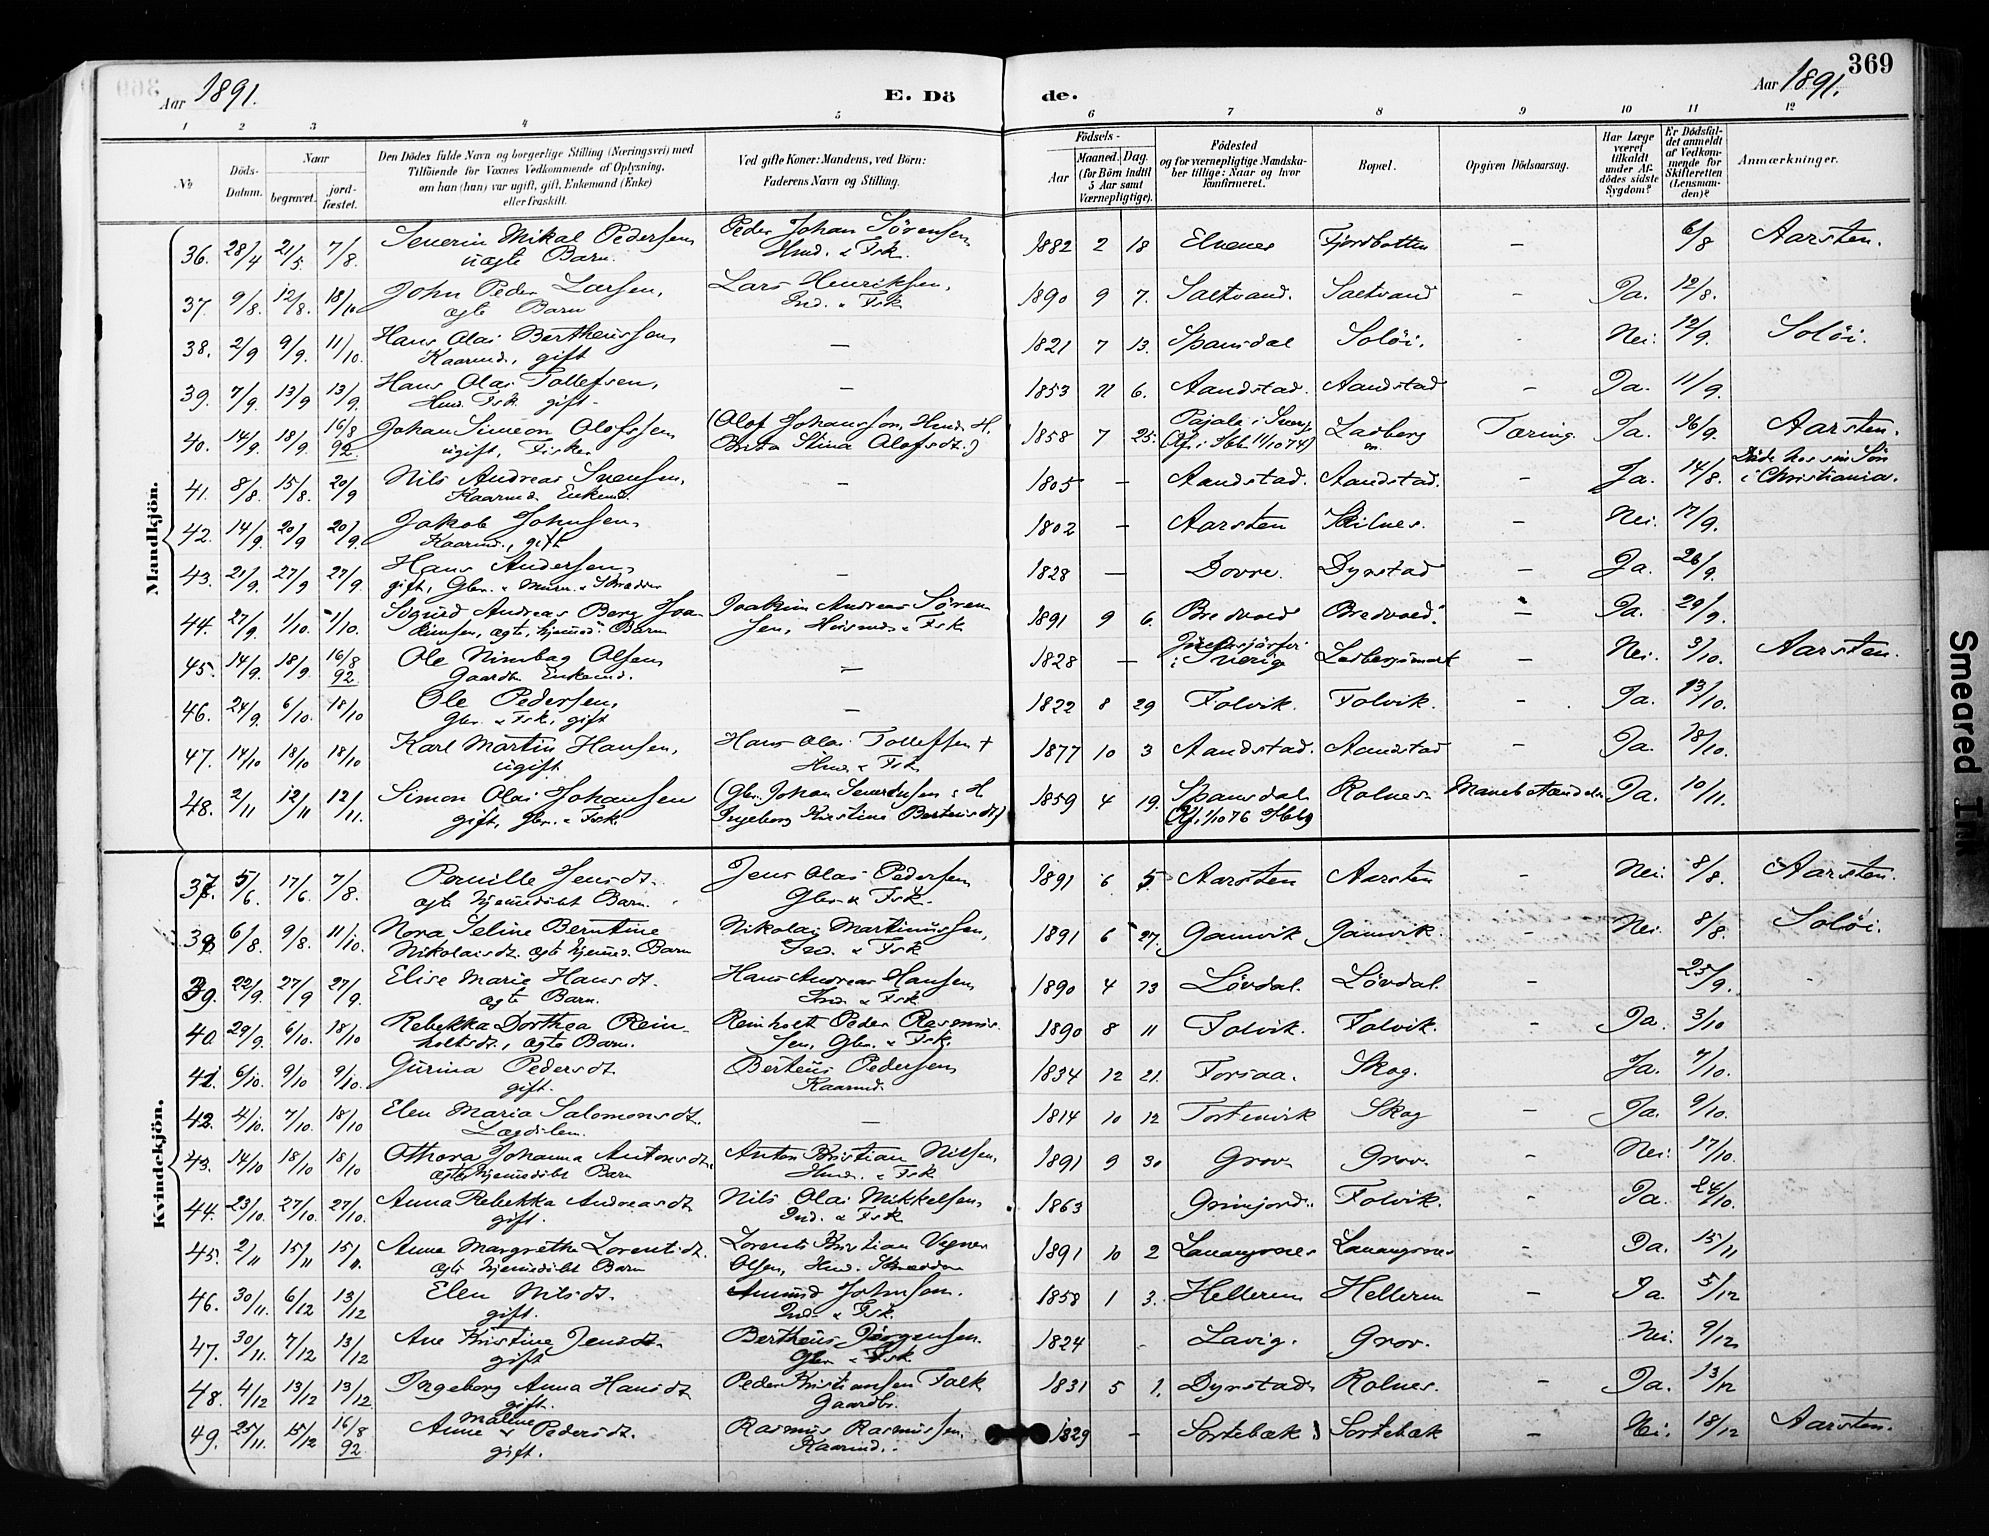 369
Aar 1891.
E. Döde.
Aar 1891.
1 2 3 4 5 6 7 8 9 10 11 12
No
Döds-Datum.
Naar
begravet.
jord-fæstet.
Den Dödes fulde Navn og borgerlige Stilling (Næringsvei) med
Tilföiende for Voxnes Vedkommende af Oplysning,
om han (hun) var ugift, gift, Enkemand (Enke)
eller fraskilt.
Ved gifte Koner: Mandens, ved Börn:
Faderens Navn og Stilling.
Födsels-
Aar
Maaned. Dag.
(for Börn indtil
5 Aar samt
Værnepligtige).
Födested
og for værnepligtige Mandska-
ber tillige: Naar og hvor
konfirmeret.
Bopæl.
Opgiven Dödsaarsag.
Har Læge
været
tilkaldt
under Af-
dödes sidste
Sygdom?
Er Dödsfal-
det anmeldt
af Vedkom-
mende for
Skifteretten
(Lensman-
den)?
Anmærkninger.
Mandkjön.
36. 28/4 21/5 7/8. Severin Mikal Pedersen Peder Johan Sörensen 1882 2 18 Elvenes Fjordbotten – 6/8 Aarsten.
uægte Barn. Hmd. & Fsk.
37. 9/8. 12/8. 18/10 John Peder Larsen, Lars Henriksen, 1890 9 7. Saltvand. Saltvand – Ja. 12/8.
ægte Barn Ind. & Fsk
38. 2/9 9/9. 11/10. Hans Olai Bertheussen, — 1821 7 13. Spansdal Solöi. Nei. 12/9. Solöi.
Kaarmd., gift
39. 7/9. 13/9 13/9. Hans Olai Tollefsen, — 1853 11 6. Aandstad. Aandstad – Ja. 11/9.
Hmd. Fsk. gift.
40. 14/9. 18/9. 16/8 92. Johan Simeon Olofssen (Olof Johansson, Hmd. H. 1858 7 25. Pajala i Sverig Lasberg Tæring. Ja. 16/9. Aarsten.
ugift, Fisker Brita Stina Olofsdt.)
41. 8/8. 15/8. 20/9 Nils Andreas Svensen, — 1805 — Aandstad. Aandstad. – Ja. 14/8. Döde hos sin Sön
Kaarmd. Enkemd. i Christiania.
42. 14/9. 20/9 20/9. Jakob Johnsen, 1802 — Aarsten Skilnes. – Nei. 17/9.
Kaarmd., gift
43. 21/9. 27/9 27/9 Hans Andersen, — 1828 — Dovre. Dyrstad – Ja. 26/9.
gift, Gbr. & Murm. & Skrædder
44. 27/9. 1/10. 1/10. Sigurd Andreas Berg Joa- Joakim Andreas Sören- 1891 9 6. Bredvoed Bredvoed. – Ja. 29/9.
kimsen, ægte, hjemmed. Barn sen, Husmd. & Fsk
45. 14/9. 18/9. 16/8 92. Ole Nimbag Olsen — 1828 — i Sverig – Nei. 3/10. Aarsten.
Gaardbr. Enkemd.
46. 24/9. 6/10. 18/10 Ole Pedersen, — 1822 8 29 Folvik. Folvik. – Ja. 13/10.
Gbr. & Fsk, gift
47. 14/10 18/10 18/10 Karl Martin Hansen, Hans Olai Tollefsen + 1877 10 3 Aandstad. Aandstad – Ja. 18/10.
ugift Hmd. & Fsk
48. 2/11 12/11 12/11. Simon Olai Johansen (Gbr. Johan Severinsen & H 1859 4 19. Spansdal Rolnes Ja. 10/11.
gift, Gbr. & Fsk. Ingeborg Kirstine Berteusdt.) Kf. 1/10 76 Ibbg
Kvindekjön.
37. 5/6 17/6. 7/8. Pernille Jensdt. Jens Olai Pedersen 1891 6 5. Aarsten Aarsten – Nei. 8/8. Aarsten.
ægte hjemmedöbt Barn. Gbr. & Fsk.
38 6/8. 9/8. 11/10. Nora Seline Berntine Nikolai Martinussen, 1891 6 27. Gamvik Gamvik. – Nei. 8/8. Solöi.
Nikolaisdt. ægte hjemmed. Barn Ind. & Fsk
39. 22/9. 27/9 27/9. Elise Marie Hansdt. Hans Andreas Hansen, 1890 4 23 Lövdal. Lövdal. – 25/9.
ægte Barn. Ind. & Fsk
40 29/9. 6/10. 18/10 Rebekka Dorthea Rein- Reinholt Peder Rasmus- 1890 8 11 Folvik. Folvik. – Ja. 3/10
holtsdt., ægte Barn. sen, Gbr. & Fsk.
41. 6/10. 9/10 9/10. Gurina Pedersdt. Berteus Pedersen 1834 12 21. Forsaa. Skog. – Ja. 7/10.
gift. Kaarmd.
42. 4/10. 7/10. 18/10 Elen Maria Salomonsdt. — 1814 10 12 Tortenvik Skog – Ja. 9/10.
Lægdslem.
43. 14/10 18/10 18/10 Othora Johanna Antonsdt. Anton Kristian Nilsen, 1891 9 30 Grov. Grov. – Nei. 17/10.
ægte hjemmedöbt Barn Hmd. & Fsk
44. 23/10. 27/10. 27/10. Anna Rebekka Andreasdt. Nils Olai Mikkelsen, 1863 Grimjord. Folvik. – Ja. 24/10.
gift. Ind. & Fsk
45. 2/11 15/11 15/11. Anna Margrethe Lorentsdt. Lorents Kristian Vegner 1891 10 2 Lavangsnes Lavangsnes – Ja. 15/11
ægte hjemmedöbt Barn Olsen, Hmd. Skrædder
46. 30/11. 6/12 13/12 Elen Nilsdt. Amund Johnsen. 1858 1 3. Helleren Helleren – Ja. 5/12
gift. Ind. & Fsk.
47. 30/11. 7/12 13/12 Ane Kirstine Jensdt. Bertheus Jörgensen. 1824 - Lavig. Grov. Nei. 9/12
gift Gbr. & Fsk.
48. 4/12 13/12 13/12. Ingeborg Anna Hansdt. Peder Kristiansen Falk 1831 5 1. Dyrstad Rolnes. – Ja. 13/12
gift. Gaardbr.
49. 25/11. 15/12 16/8 92. Anne Maline Pedersdt. Rasmus Rasmussen, 1829 – Sortebæk Sortebæk – Nei. 18/12 Aarsten.
gift. Kaarmd.
Smeared Ink